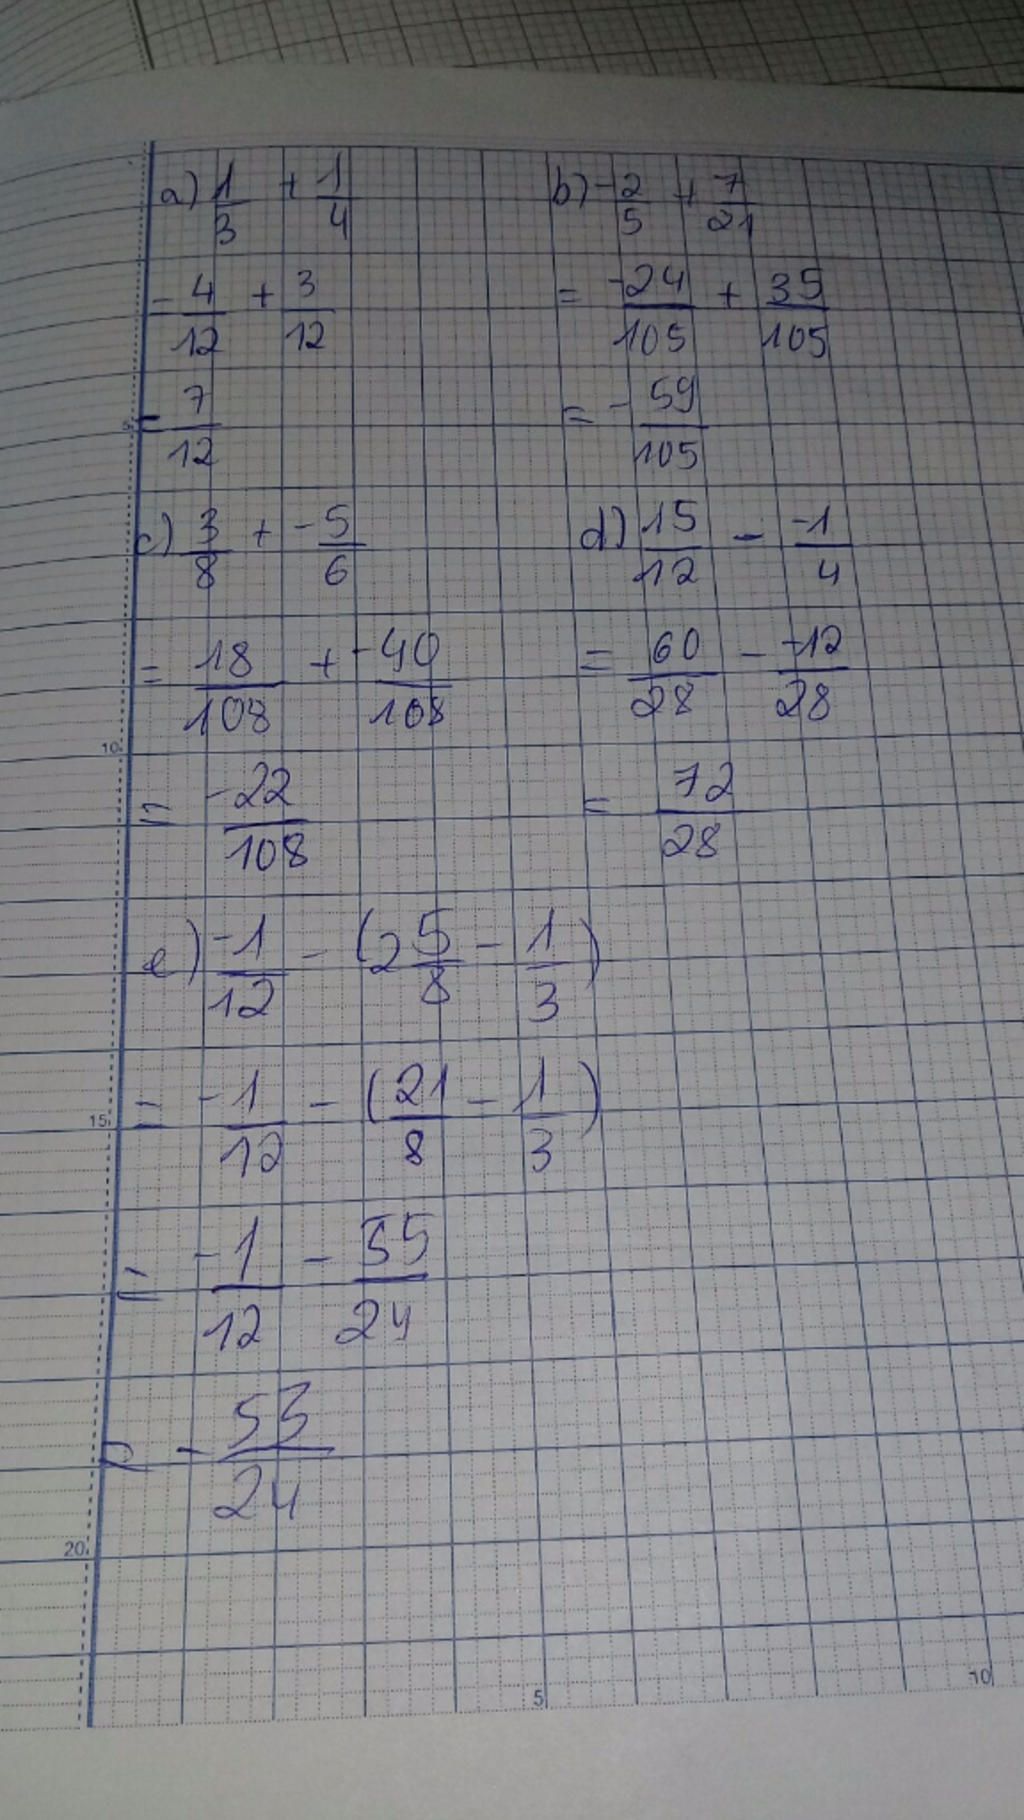 a) 1/3 + 1/4
= 4/12 + 3/12
= 7/12
b) -2/5 + 7/21
= -24/105 + 35/105
= - 59/105
c) 3/8 + -5/6
= 18/108 + -40/108
= -22/108
d) 15/12 - -1/4
= 60/28 - -12/28
= 72/28
e) -1/12 - (2 5/8 - 1/3)
= -1/12 - (21/8 - 1/3)
= -1/12 - 55/24
= - 53/24
5
10
15
20
5
10